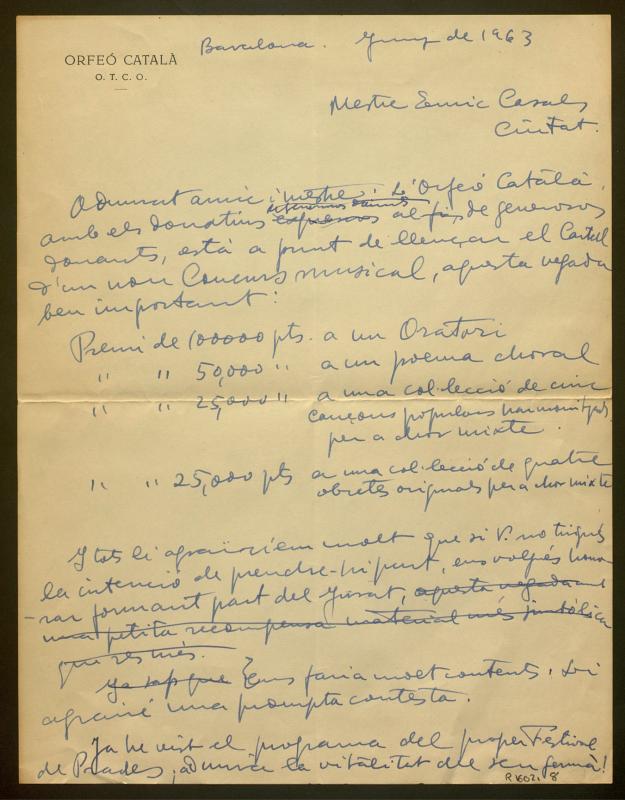 ORFEÓ CATALÀ
O. T. C. O.
Barcelona. Juny de 1963
Mestre Enric Casals
Ciutat.
Admirat amic i mestre: L'Orfeó Català,
amb els donatius al fi de generosos
donants, està a punt de llençar el Cartell
d'un nou Concurs musical, aquesta vegada
ben important:
Premi de 100000 pts. a un Oratori
" " 50,000 " a un poema choral
" " 25,000 " a una col·lecció de cinc
cançons populars harmonitzades
per a chor mixte.
" " 25,000 pts a una col·lecció de quatre
obretes originals per a chor mixte
I tots li agrairíem molt que si V. no tingués
la intenció de prendre-hi part, ens volgués hono-
rar formant part del Jurat, aquesta vegada amb
una petita recompensa material més simbòlica
que res més.
Ja sap que Ens faria molt contents. Li
agrairé una prompta contesta.
Ja he vist el programa del proper Féstival
de Prades; admiro la vitalitat del seu germà!
R.16021 8